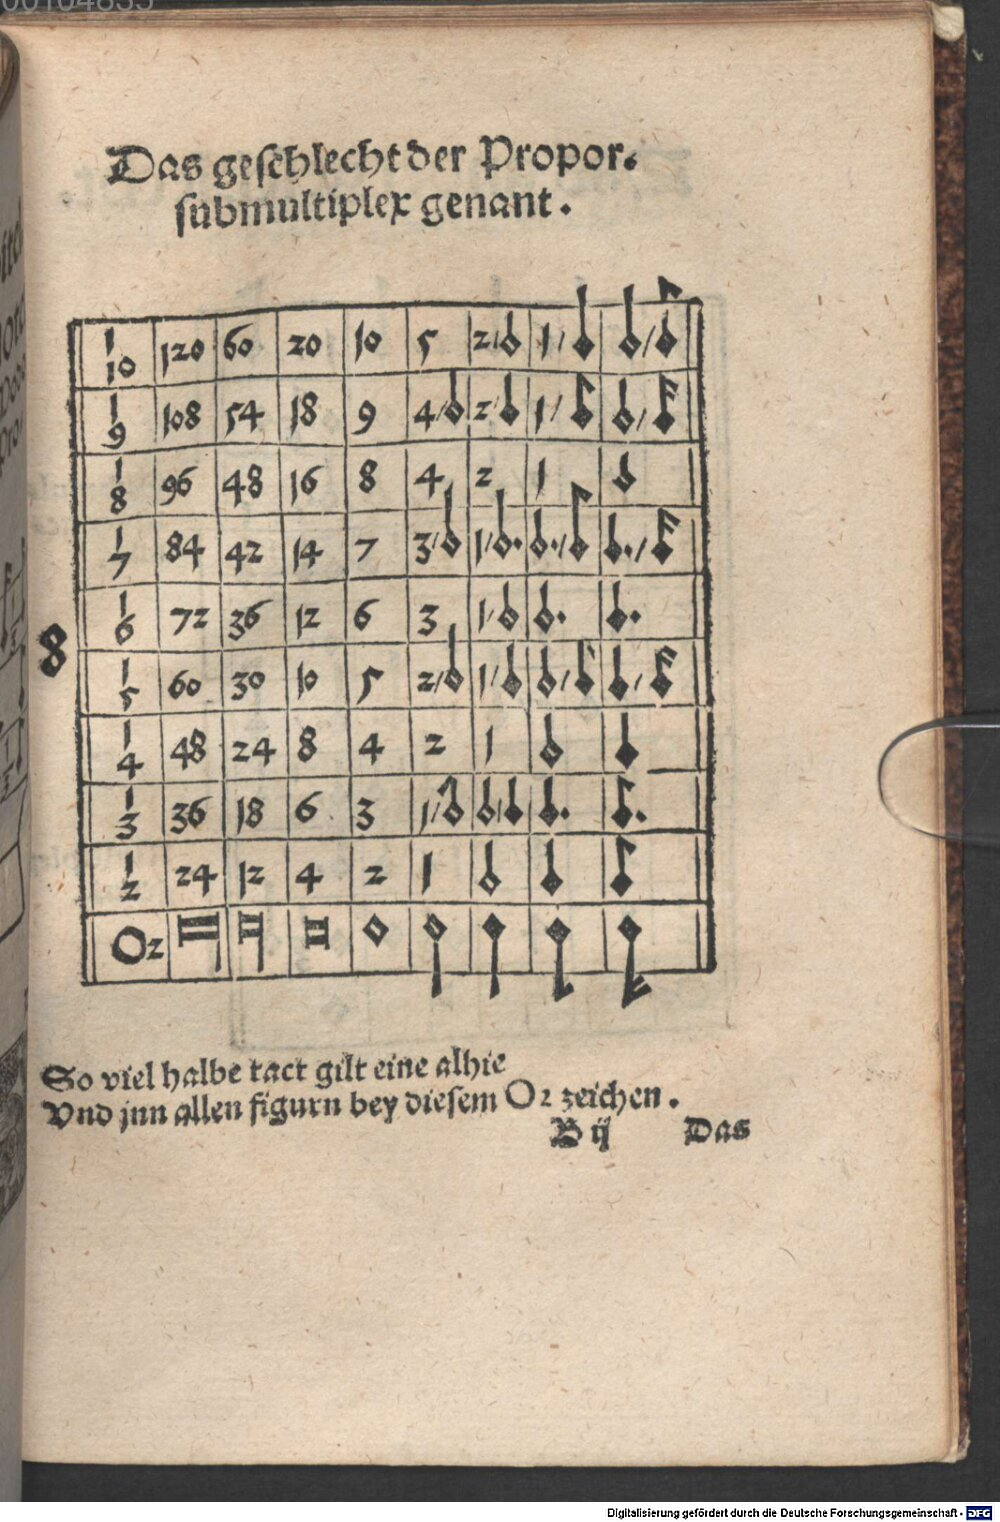 Das geschlecht der Propor.
submultiplex genant.
1/10 120 60 20 10 5 2/ 1/ /
1/9 108 54 18 9 4/ 2/ 1/ /
1/8 96 48 16 8 4 2 1
1/7 84 42 14 7 3/ 1/ / /
1/6 72 36 12 6 3 1/
8
1/5 60 30 10 5 2/ 1/ / /
1/4 48 24 8 4 2 1
1/3 36 18 6 3 1/ /
1/2 24 12 4 2 1
O2
So viel halbe tact gilt eine alhie
Vnd jnn allen figurn bey diesem O2 zeichen.
B ij Das
Digitalisierung gefördert durch die Deutsche Forschungsgemeinschaft - DFG